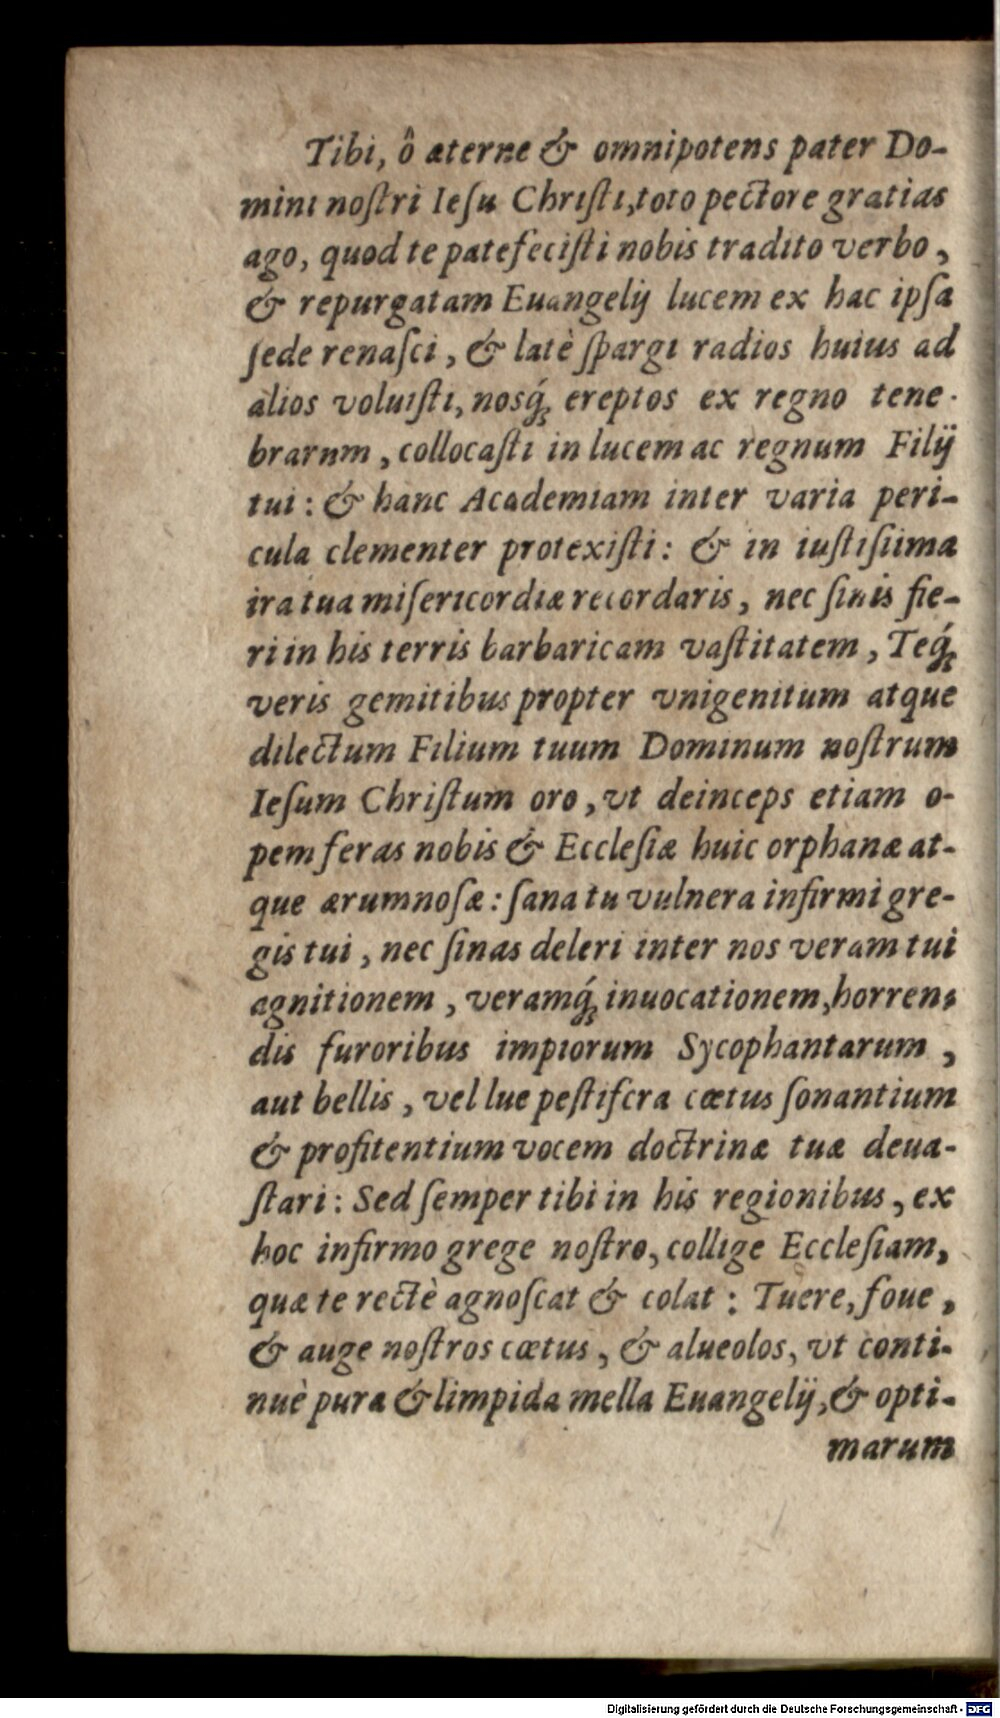 Tibi, ô æterne & omnipotens pater Do-
mini noſtri Ieſu Chriſti, toto pectore gratias
ago, quod te patefeciſti nobis tradito verbo,
& repurgatam Euangelij lucem ex hac ipſa
ſede renaſci, & latè ſpargi radios huius ad
alios voluiſti, nosq́; ereptos ex regno tene-
brarum, collocaſti in lucem ac regnum Filij
tui: & hanc Academiam inter varia peri-
cula clementer protexiſti: & in iuſtiſsima
ira tua miſericordiæ recordaris, nec ſinis fie-
ri in his terris barbaricam vaſtitatem, Teq́;
veris gemitibus propter vnigenitum atque
dilectum Filium tuum Dominum noſtrum
Ieſum Chriſtum oro, vt deinceps etiam o-
pem feras nobis & Eccleſiæ huic orphanæ at-
que ærumnoſæ: ſana tu vulnera infirmi gre-
gis tui, nec ſinas deleri inter nos veram tui
agnitionem, veramq́; inuocationem, horren-
dis furoribus impiorum Sycophantarum,
aut bellis, vel lue peſtifera cœtus ſonantium
& profitentium vocem doctrinæ tuæ deua-
ſtari: Sed ſemper tibi in his regionibus, ex
hoc infirmo grege noſtro, collige Eccleſiam,
quæ te rectè agnoſcat & colat: Tuere, foue,
& auge noſtros cœtus, & alueolos, vt conti-
nuè pura & limpida mella Euangelij, & opti-
marum
Digitalisierung gefördert durch die Deutsche Forschungsgemeinschaft - DFG